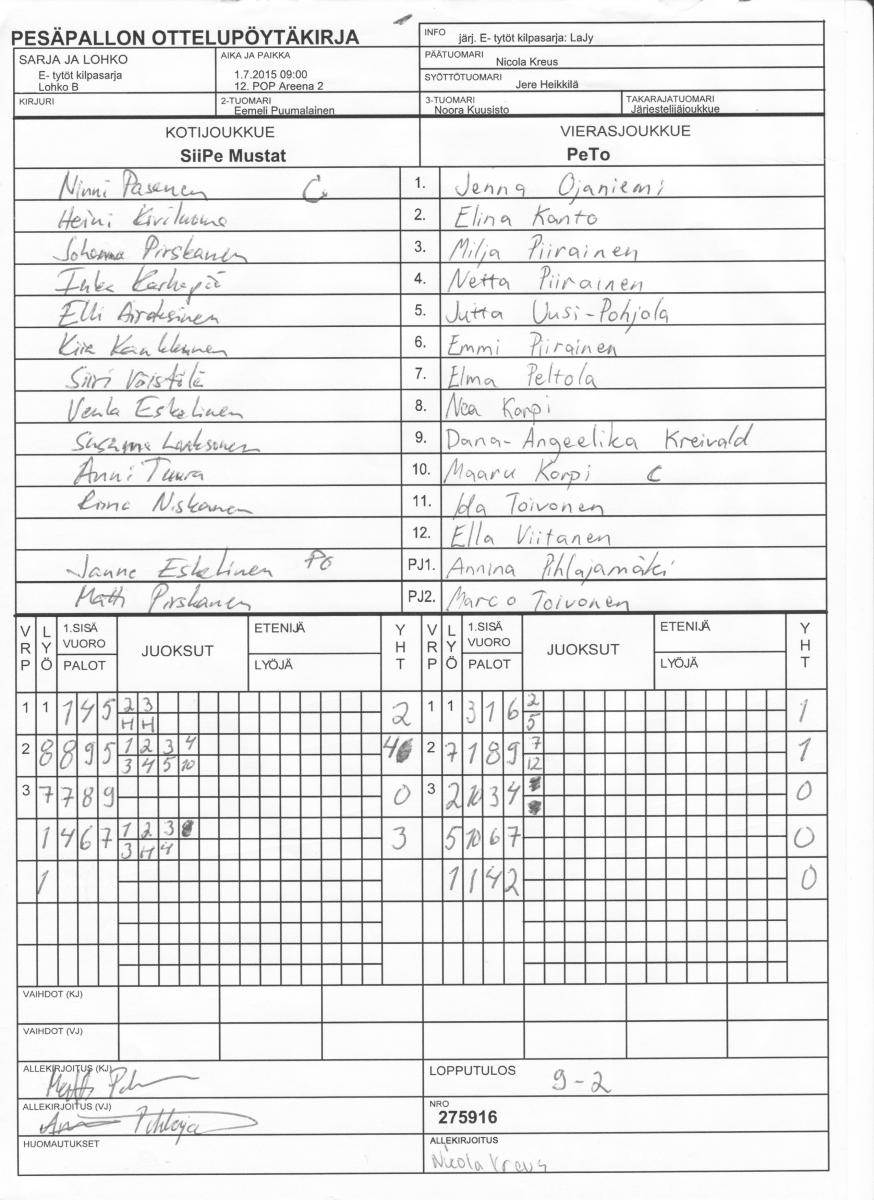 PESÄPALLON OTTELUPÖYTÄKIRJA
INFO järj. E- tytöt kilpasarja: LaJy
SARJA JA LOHKO
E- tytöt kilpasarja
Lohko B
AIKA JA PAIKKA
1.7.2015 09:00
12. POP Areena 2
PÄÄTUOMARI
Nicola Kreus
SYÖTTÖTUOMARI
Jere Heikkilä
KIRJURI
2-TUOMARI
Eemeli Puumalainen
3-TUOMARI
Noora Kuusisto
TAKARAJATUOMARI
Järjestelijäjoukkue
KOTIJOUKKUE VIERASJOUKKUE
SiiPe Mustat PeTo
Ninni Pasanen C 1. Jenna Ojaniemi
Heini Kiviluoma 2. Elina Kanto
Johanna Pirskanen 3. Milja Piirainen
Inka Karhapää 4. Netta Piirainen
Elli Airaksinen 5. Jutta Uusi-Pohjola
Kiia Kaukkunen 6. Emmi Piirainen
Siiri Väistölä 7. Elma Peltola
Venla Eskelinen 8. Nea Korpi
Susanna Laaksonen 9. Dana-Angeelika Kreivald
Anni Tuura 10. Maaru Korpi C
Niskanen 11. Ida Toivonen
12. Ella Viitanen
Janne Eskelinen PJ1. Annina Pihlajamäki
Matti Pirskanen PJ2. Marco Toivonen
VRP LYÖ 1.SISÄ VUORO PALOT JUOKSUT ETENIJÄ LYÖJÄ YHT VRP LYÖ 1.SISÄ VUORO PALOT JUOKSUT ETENIJÄ LYÖJÄ YHT
1 1 1 4 5 2 3 2 1 1 3 1 6 2 1
H H 5
2 8 8 9 5 1 2 3 4 4 2 7 1 8 9 7 1
3 4 5 10 12
3 7 7 8 9 0 3 2 10 3 4 0
1 4 6 7 1 2 3 3 5 10 6 7 0
3 H 4
1 1 1 4 2 0
VAIHDOT (KJ)
VAIHDOT (VJ)
ALLEKIRJOITUS (KJ)
LOPPUTULOS 9-2
ALLEKIRJOITUS (VJ)
NRO
275916
HUOMAUTUKSET
ALLEKIRJOITUS
Nicola Kreus